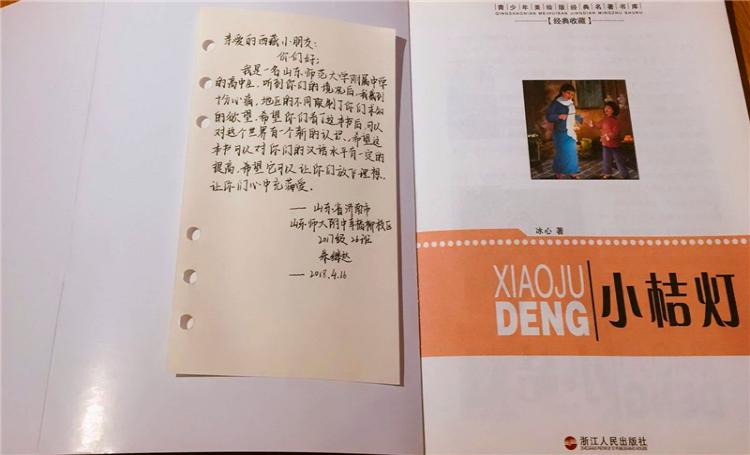 亲爱的西藏小朋友:
你们好:
我是一名山东师范大学附属中学
的高中生,听到你们的境况后,我感到
十分心痛,地区的不同限制了你们求知
的欲望,希望你们看了这本书后,可以
对这个世界有一个新的认识,希望这
本书可以对你们的汉语水平有一定的
提高,希望它可以让你们放飞理想,
让你们心中充满爱。
—— 山东省济南市
山东师大附中幸福柳校区
2017级 26班
—— 2018.4.16
青少年美绘版经典名著书库
QINGSHAONIAN MEIHUIBAN JINGDIAN MINGZHU SHUKU
【经典收藏】
冰心 著
XIAOJU
DENG
小桔灯
浙江人民出版社